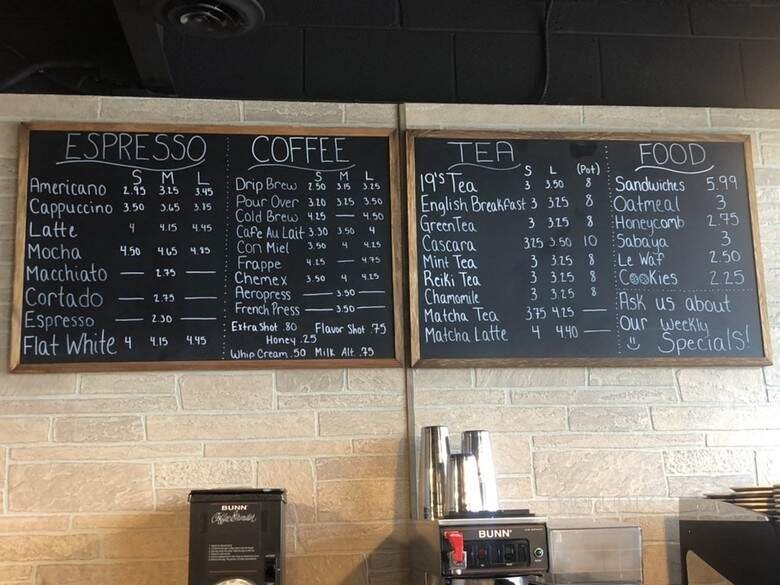 ESPRESSO
S M L
Americano 2.95 3.25 3.45
Cappuccino 3.50 3.65 3.85
Latte 4 4.15 4.45
Mocha 4.50 4.65 4.85
Macchiato — 2.75 —
Cortado — 2.75 —
Espresso — 2.30 —
Flat White 4 4.15 4.45
COFFEE
S M L
Drip Brew 2.50 3.15 3.25
Pour Over 3.20 3.25 3.50
Cold Brew 4.25 — 4.50
Cafe Au Lait 3.30 3.50 4
Con Miel 3.50 4 4.25
Frappe 4.25 — 4.75
Chemex 3.50 4 4.25
Aeropress — 3.50 —
French Press — 3.50 —
Extra Shot .80 Flavor Shot .75
Honey .25
Whip Cream .50 Milk Alt. .75
TEA
S L (Pot)
19's Tea 3 3.50 8
English Breakfast 3 3.25 8
Green Tea 3 3.25 8
Cascara 3.25 3.50 10
Mint Tea 3 3.25 8
Reiki Tea 3 3.25 8
Chamomile 3 3.25 8
Matcha Tea 3.75 4.25 —
Matcha Latte 4 4.40 —
FOOD
Sandwiches 5.99
Oatmeal 3
Honeycomb 2.75
Sabaya 3
Le Waf 2.50
Cookies 2.25
Ask us about
Our weekly
Specials!
BUNN
BUNN